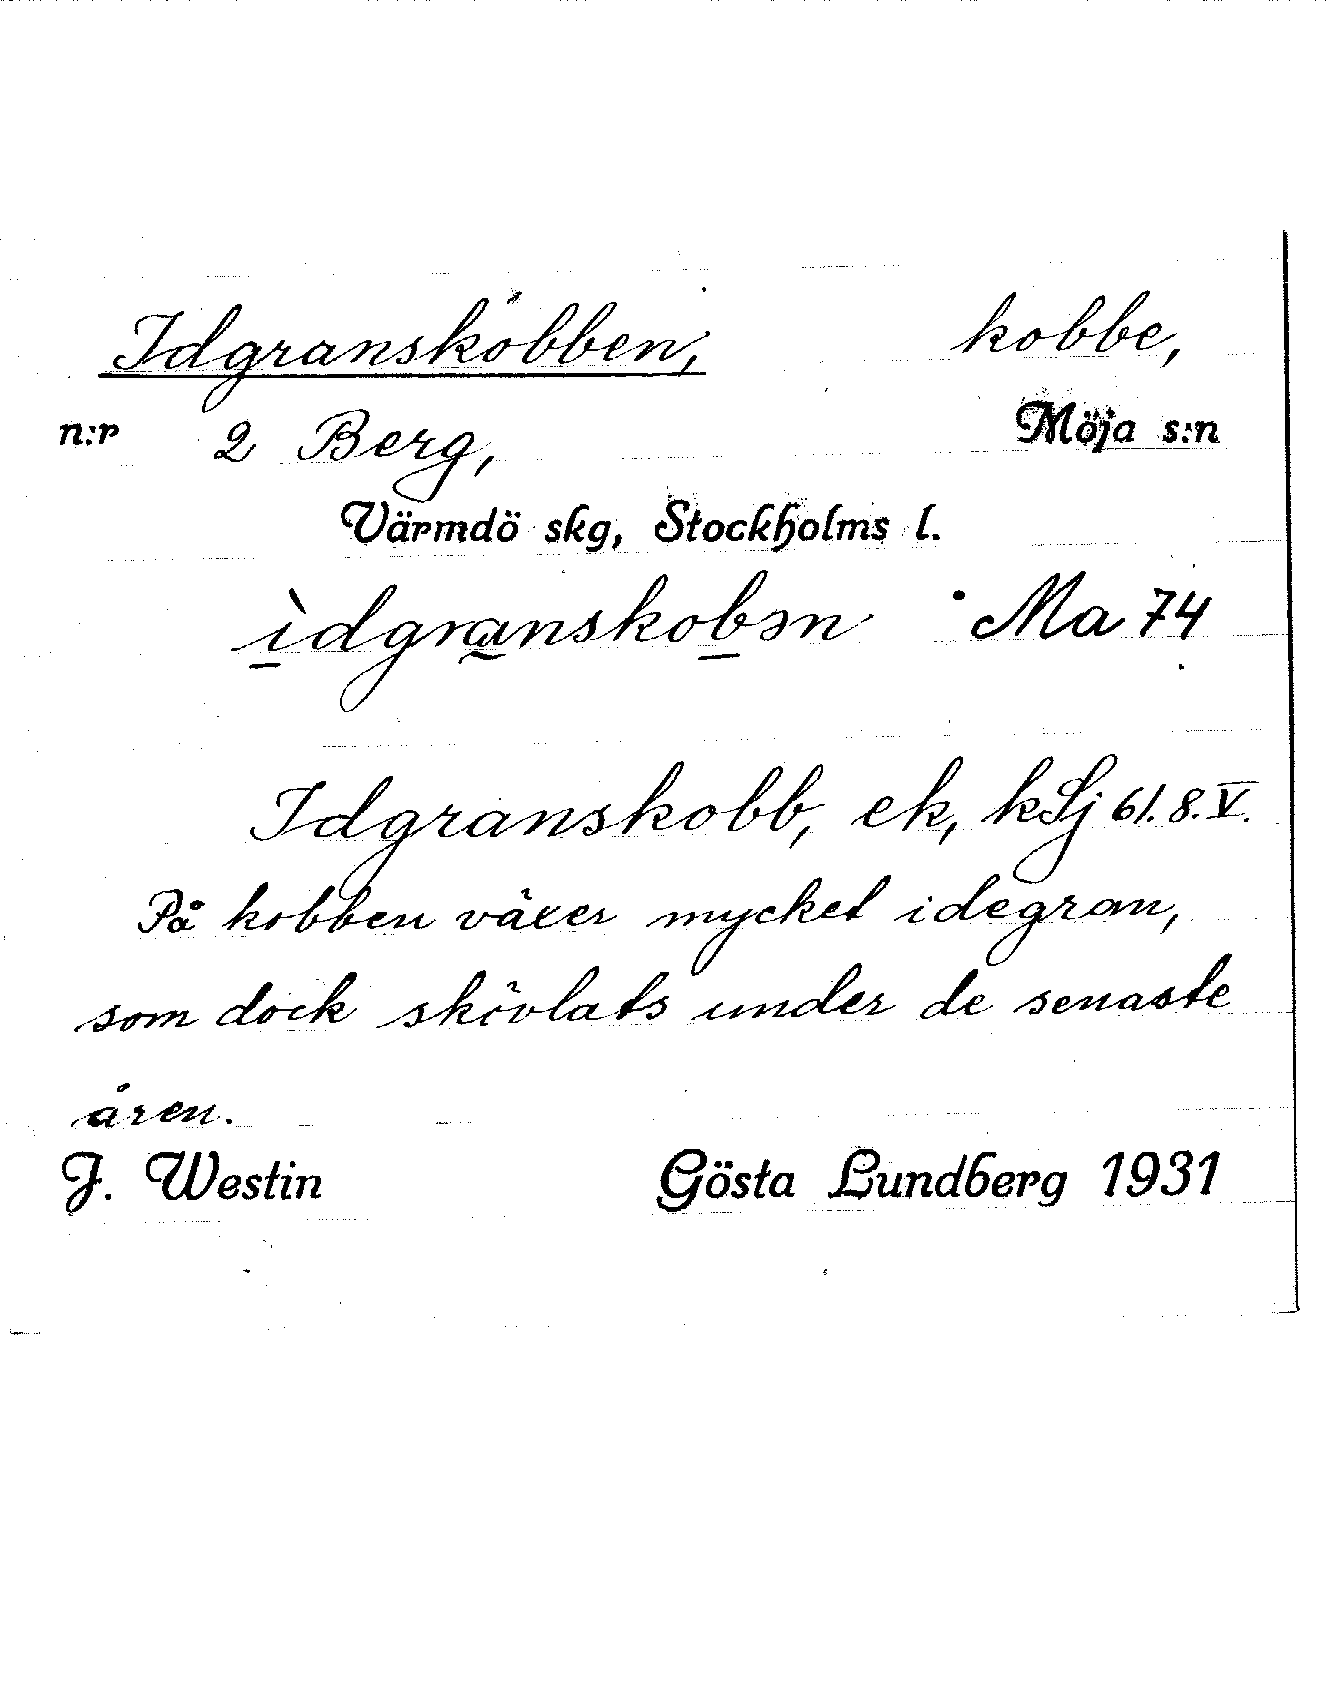 Idgranskobben, kobbe,
n:r 2 Berg, Möja s:n
Värmdö skg, Stockholms l.
ìdgranskobən Ma 74
Idgranskobb, ek, kSj 61.8.V.
På kobben växer mycket idegran,
som dock skövlats under de senaste
åren.
J. Westin Gösta Lundberg 1931